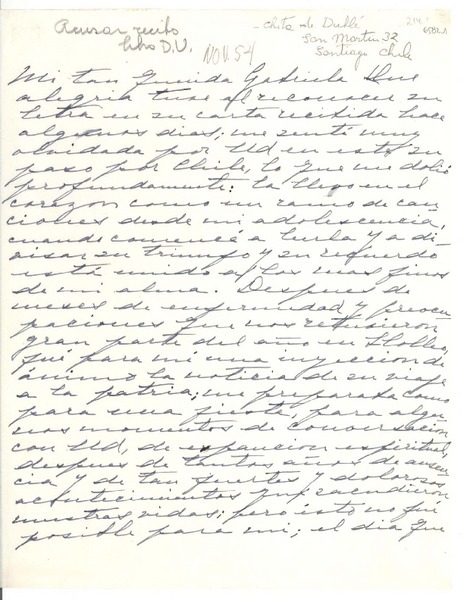 Acusar recibo
libro D.U.
Chita de Dublé
San Martín 32
Santiago Chile
NOV. 54
Mi tan querida Gabriela Que
alegría tuve al reconocer su
letra en su carta recibida hace
algunos días; me sentí muy
olvidada por Ud en este su
paso por Chile, lo que me dolió
profundamente: la llevo en el
corazón como un ramo de can
ciones desde mi adolescencia,
cuando comencé a leerla y a di
visar su triunfo y su recuerdo
está unido a los mas finos
de mi alma. Despues de
meses de enfermedad y preocu
paciones que nos retuvieron
gran parte del año en Llolleo
fué para mí una inyeccion de
ánimo la noticia de su viaje
a la patria; me preparaba como
para una fiesta, para algu
nos momentos de conversacion
con Ud, de expancion espiritual,
despues de tantos años de ausen
cia y de tan fuertes y dolorosos
acontecimientos que sacudieron
nuestras vidas; pero ésto no fué
posible para mi; el día que